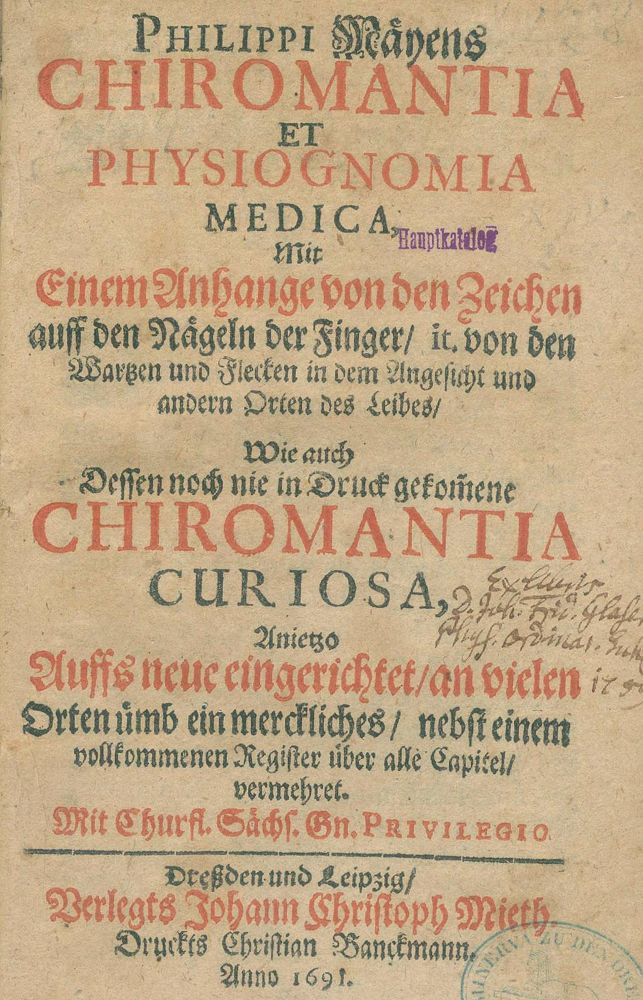 PHILIPPI Mäyens
CHIROMANTIA
ET
PHYSIOGNOMIA
MEDICA,
Hauptkatalog
Mit
Einem Anhange von den Zeichen
auff den Nägeln der Finger/ it. von den
Wartzen und Flecken in dem Angesicht und
andern Orten des Leibes/
Wie auch
Dessen noch nie in Druck gekom̃ene
CHIROMANTIA
CURIOSA,
Anietzo
Auffs neue eingerichtet/ an vielen
Orten ümb ein merckliches/ nebst einem
vollkommenen Register über alle Capitel/
vermehret.
Mit Churfl. Sächs. Gn. PRIVILEGIO
Dreßden und Leipzig/
Verlegts Johann Christoph Mieth,
Druckts Christian Banckmann,
Anno 1691.
D. Joh. Frid.
Phys. ordinar.
MINERVA ZU DEN